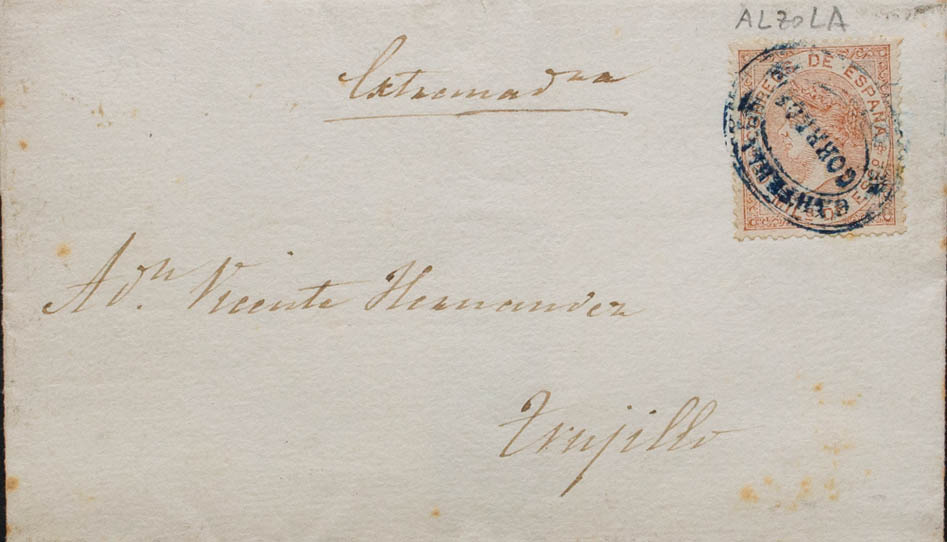 ALZOLA
Extremadra
CORREOS DE ESPAÑA
CORREOS
A dn. Vicente Hernandez
Trujillo